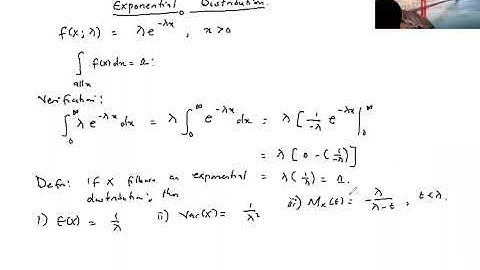 Exponential Distribution.
f(x; λ) = λ e^{-λx} , x>0
∫_{all x} f(x) dx = 1.
Verification:
∫_0^∞ λ e^{-λx} dx = λ ∫_0^∞ e^{-λx} dx = λ [ 1/-λ e^{-λx} |_0^∞
= λ [ 0 - (1/-λ) ]
Defn: If X follows an exponential = λ (1/λ) = 1.
distribution, then
i) E(X) = 1/λ ii) Var(X) = 1/λ² iii) M_x(t) = -λ/λ-t , t<λ.